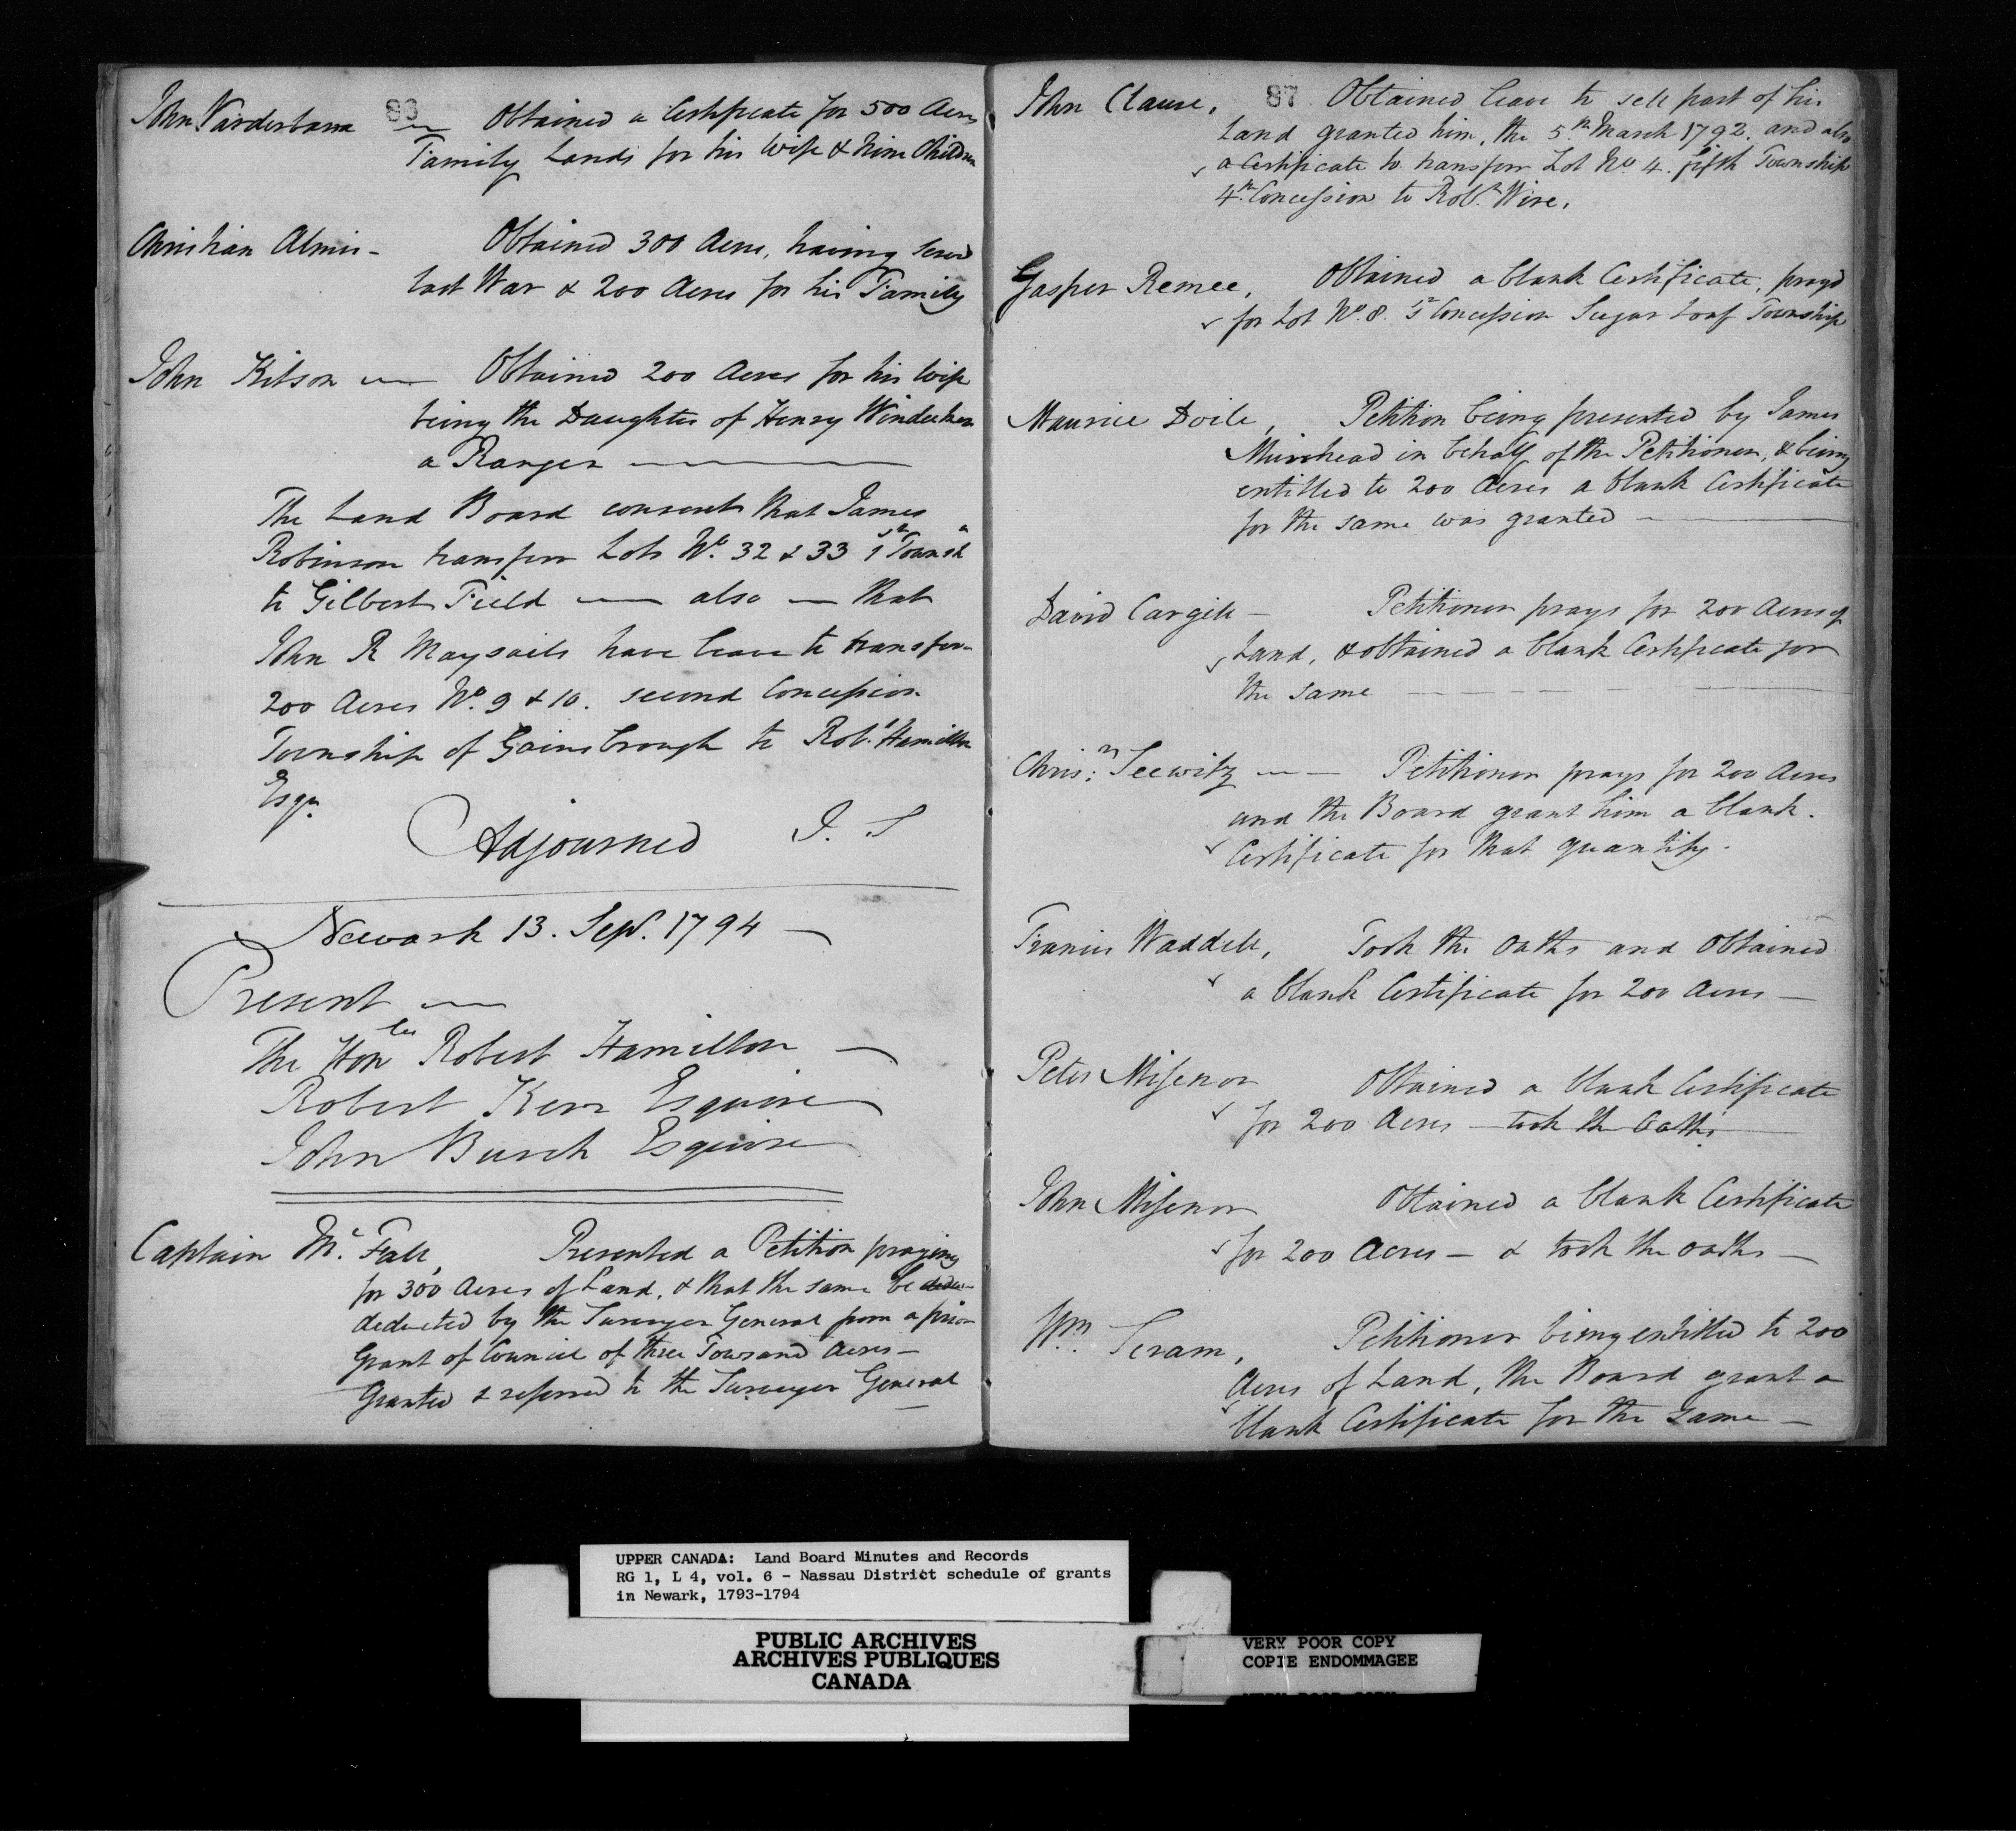 83
John Vanderbarra — Obtained a Certificate for 500 Acres
Family Lands for his Wife & Nine Children
Christian Almis - Obtained 300 Acres, having Serv'd
last War & 200 Acres for his Family
John Kitson — Obtained 200 Acres for his Wife
being the Daughter of Henry Windecker
a Ranger —
The Land Board consent that James
Robinson transfer Lots No. 32 & 33 1st Townsh
to Gilbert Field — also — that
John R Maysails have leave to transfer
200 Acres No. 9 & 10. second Concession
Township of Gainsbrough to Robt. Hamilton
Esqr.
Adjourned J. S
Newark 13. Sept. 1794 —
Present —
The Honbles Robert Hamilton —
Robert Kerr Esquire
John Burch Esquire
Captain Mc. Fall, Presented a Petition praying
for 300 Acres of Land, & that the same be
deducted by the Surveyor General from a prior
Grant of Council of three Towsand Acres —
Granted & referred to the Surveyor General —
87
John Clause, Obtained leave to sell part of his
Land granted him, the 5th March 1792. and also
a Certificate to transfer Lot No 4. fifth Township
4th Concession to Robt. Wire.
Gasper Remee, Obtained a blank Certificate, prayd
for Lot No. 8. 1st Concession Sugar Loaf Township
Maurice Doile, Petition being presented by James
Muirhead in behalf of the Petitioner, & being
entitled to 200 Acres a blank Certificate
for the same was granted —
David Cargill — Petitioner prays for 200 Acres of
Land, & obtained a blank Certificate for
the same — — — —
Chrisn: Seewitz — — Petitioner prays for 200 Acres
and the Board grant him a blank.
Certificate for that quantity.
Francis Waddell, Took the Oaths and Obtained
a blank Certificate for 200 Acres —
Peter Misenor Obtained a blank Certificate
for 200 Acres — took the Oaths
John Misenor Obtained a blank Certificate
for 200 Acres — & took the oaths —
Wm. Seram, Petitioner being entitled to 200
Acres of Land, the Board grant a
blank Certificate for the same —
UPPER CANADA: Land Board Minutes and Records
RG 1, L 4, vol. 6 - Nassau District schedule of grants
in Newark, 1793-1794
PUBLIC ARCHIVES
ARCHIVES PUBLIQUES
CANADA
VERY POOR COPY
COPIE ENDOMMAGEE